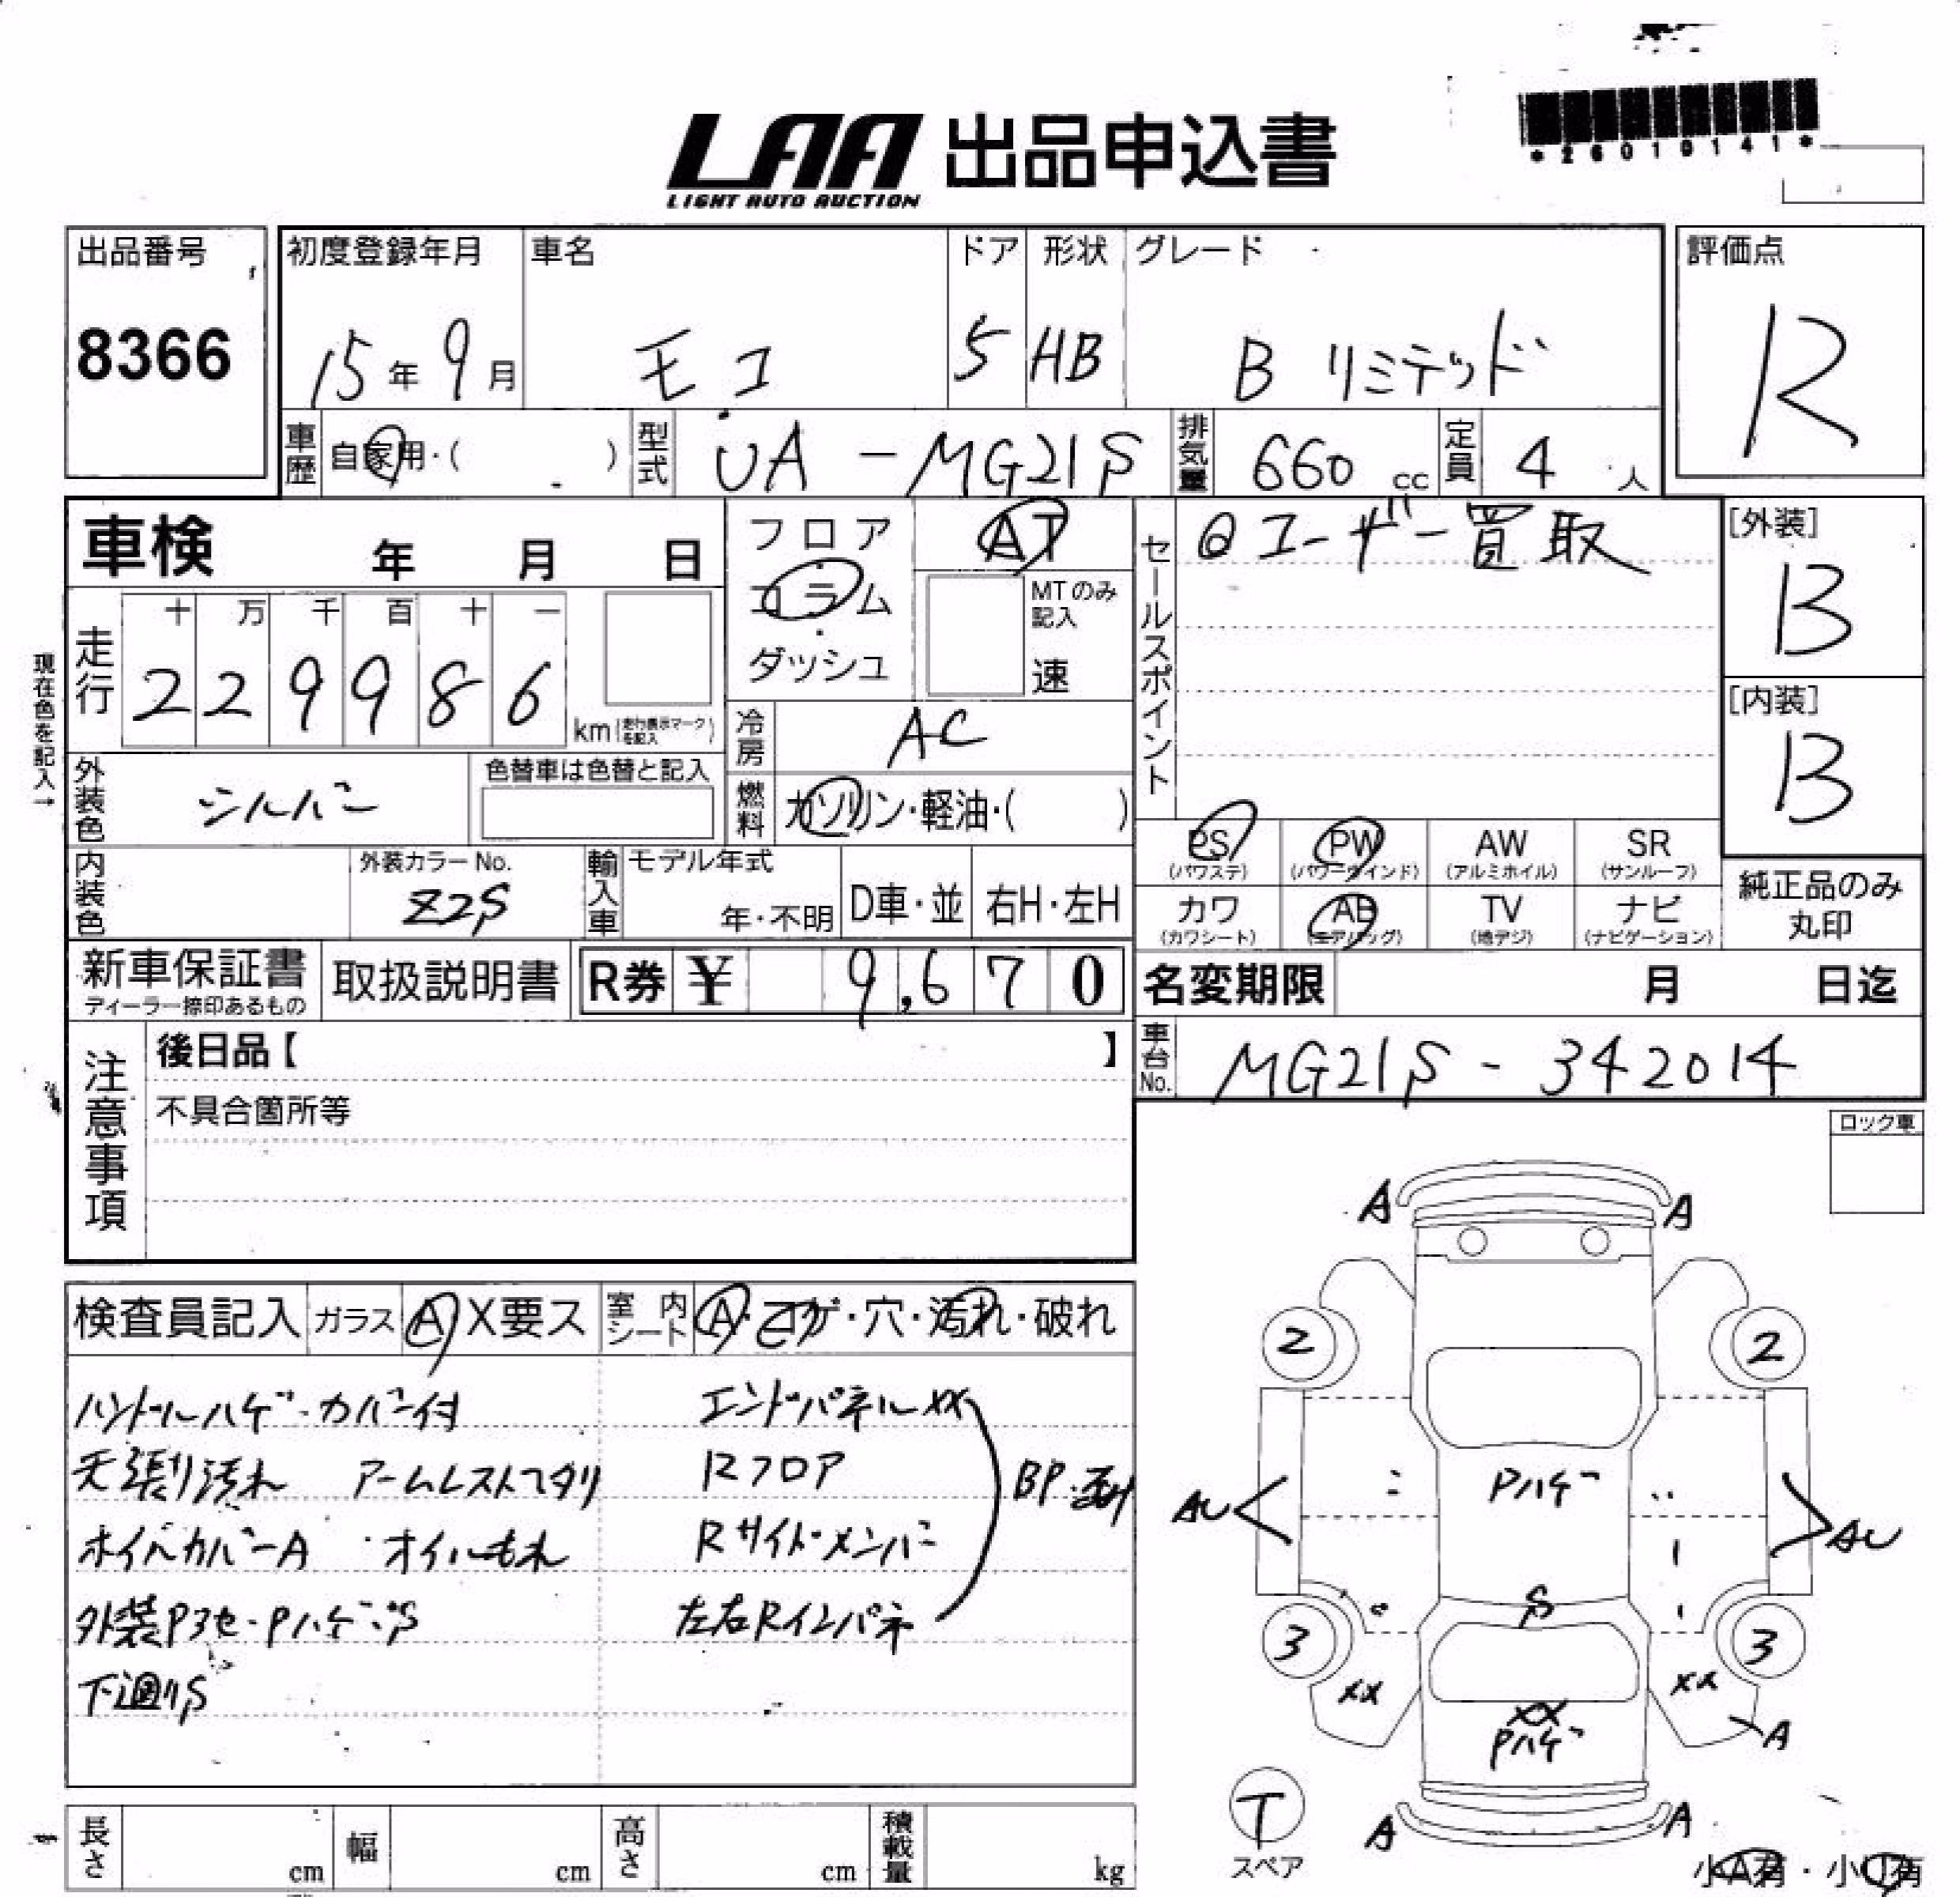 LAA 出品申込書
LIGHT AUTO AUCTION
*26019141*
出品番号
8366
初度登録年月
15年9月
車名
モコ
ドア
5
形状
HB
グレード
B リミテッド
評価点
R
車歴
自家用・( )
型式
UA-MG21S
排気量
660 cc
定員
4 人
車検 年 月 日
現在色を記入→
走行
十 万 千 百 十 一
2 2 9 9 8 6
km(走行表示マークを記入)
フロア
コラム
ダッシュ
AT
MTのみ記入
速
冷房
AC
燃料
ガソリン・軽油・( )
外装色
シルバー
色替車は色替と記入
内装色
外装カラーNo.
Z2S
輸入車
モデル年式
年・不明
D車・並
右H・左H
セールスポイント
@ユーザー買取
[外装]
B
[内装]
B
PS
(パワステ)
PW
(パワーウインド)
AW
(アルミホイル)
SR
(サンルーフ)
カワ
(カワシート)
AB
(エアバッグ)
TV
(地デジ)
ナビ
(ナビゲーション)
純正品のみ
丸印
新車保証書
ディーラー捺印あるもの
取扱説明書
R券 ¥ 9,670
名変期限 月 日迄
車台No.
MG21S-342014
注意事項
後日品【 】
不具合箇所等
ロック車
検査員記入
ガラス
A X要ス
室内シート
A・コゲ・穴・汚れ・破れ
ハンドルハゲ・カバー付
天張り汚れ アームレストヘタリ
ホイルカバーA ・オイルもれ
外装Pヨセ・Pハゲ・S
下廻りS
エンドパネルXX
Rフロア
Rサイドメンバー
左右Rインパネ
BP・
A A
2 2
Pハゲ
AU AU
S
3 3
XX XX
XX
Pハゲ
A
T
スペア
A A
小A有・小U有
長さ cm
幅 cm
高さ cm
積載量 kg